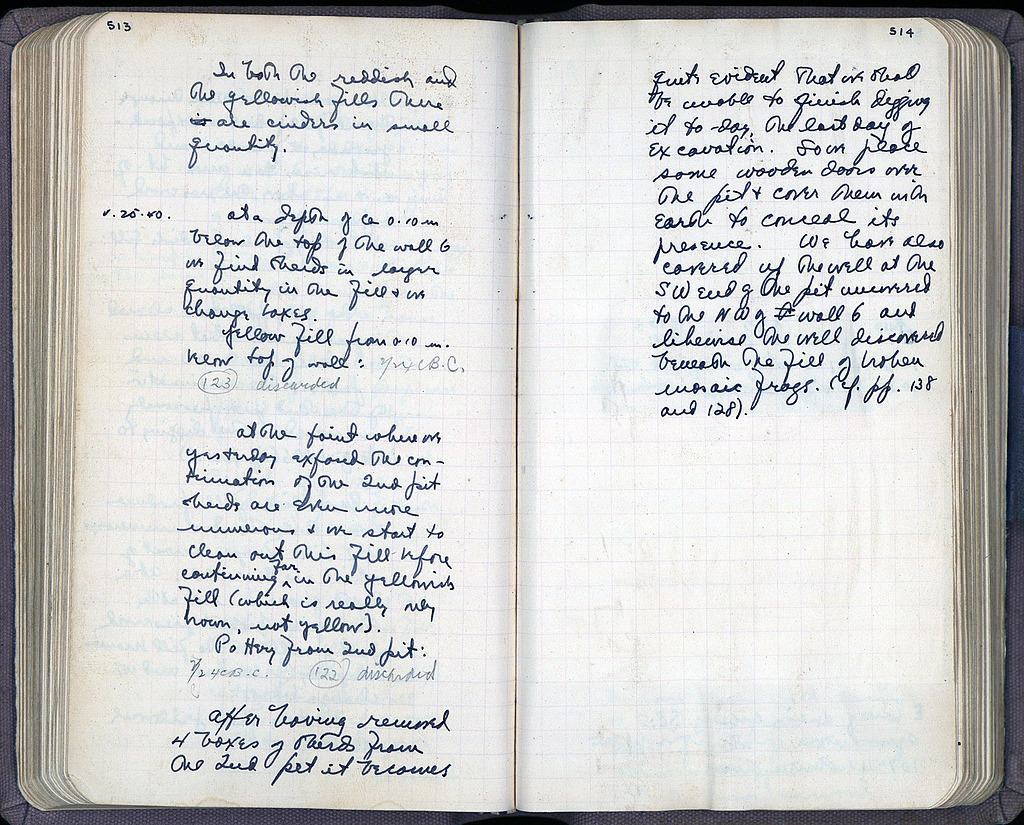 513
In both the reddish and
the yellowish fills there
is are cinders in small
quantity.
V.25.40.
at a depth of ca 0.10 m
below the top of the wall 6
we find sherds in larger
quantity in the fill & we
change boxes.
Yellow fill from 0.10 m.
below top of wall: 3/4 c B.C.
123 discarded
at the point where we
yesterday exposed the con-
tinuation of the 2nd pit
sherds are even more
numerous & we start to
clean out this fill before
continuing far in the yellowish
fill (which is really
brown, not yellow).
Pottery from 2nd pit:
4 c B.C. 122 discarded
After having removed
4 boxes of sherds from
the 2nd pit it becomes
514
quite evident that we shall
be unable to finish digging
it to-day, the last day of
Excavation. So we place
some wooden doors over
the pit & cover them with
earth to conceal its
presence. We have also
covered up the well at the
SW end of the pit uncovered
to the NW of wall 6 and
likewise the well discovered
beneath the fill of broken
mosaic frags. (cf. pp. 138
and 128).